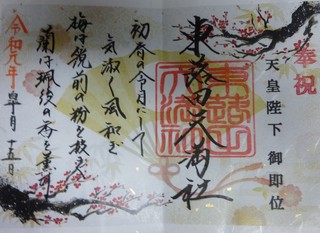 奉祝
天皇陛下 御即位
東蕗田天満社
初春の令月にして
気淑く風和ぎ
梅は鏡前の粉を披き
蘭は珮後の香を薫す
令和元年 皐月 十五日